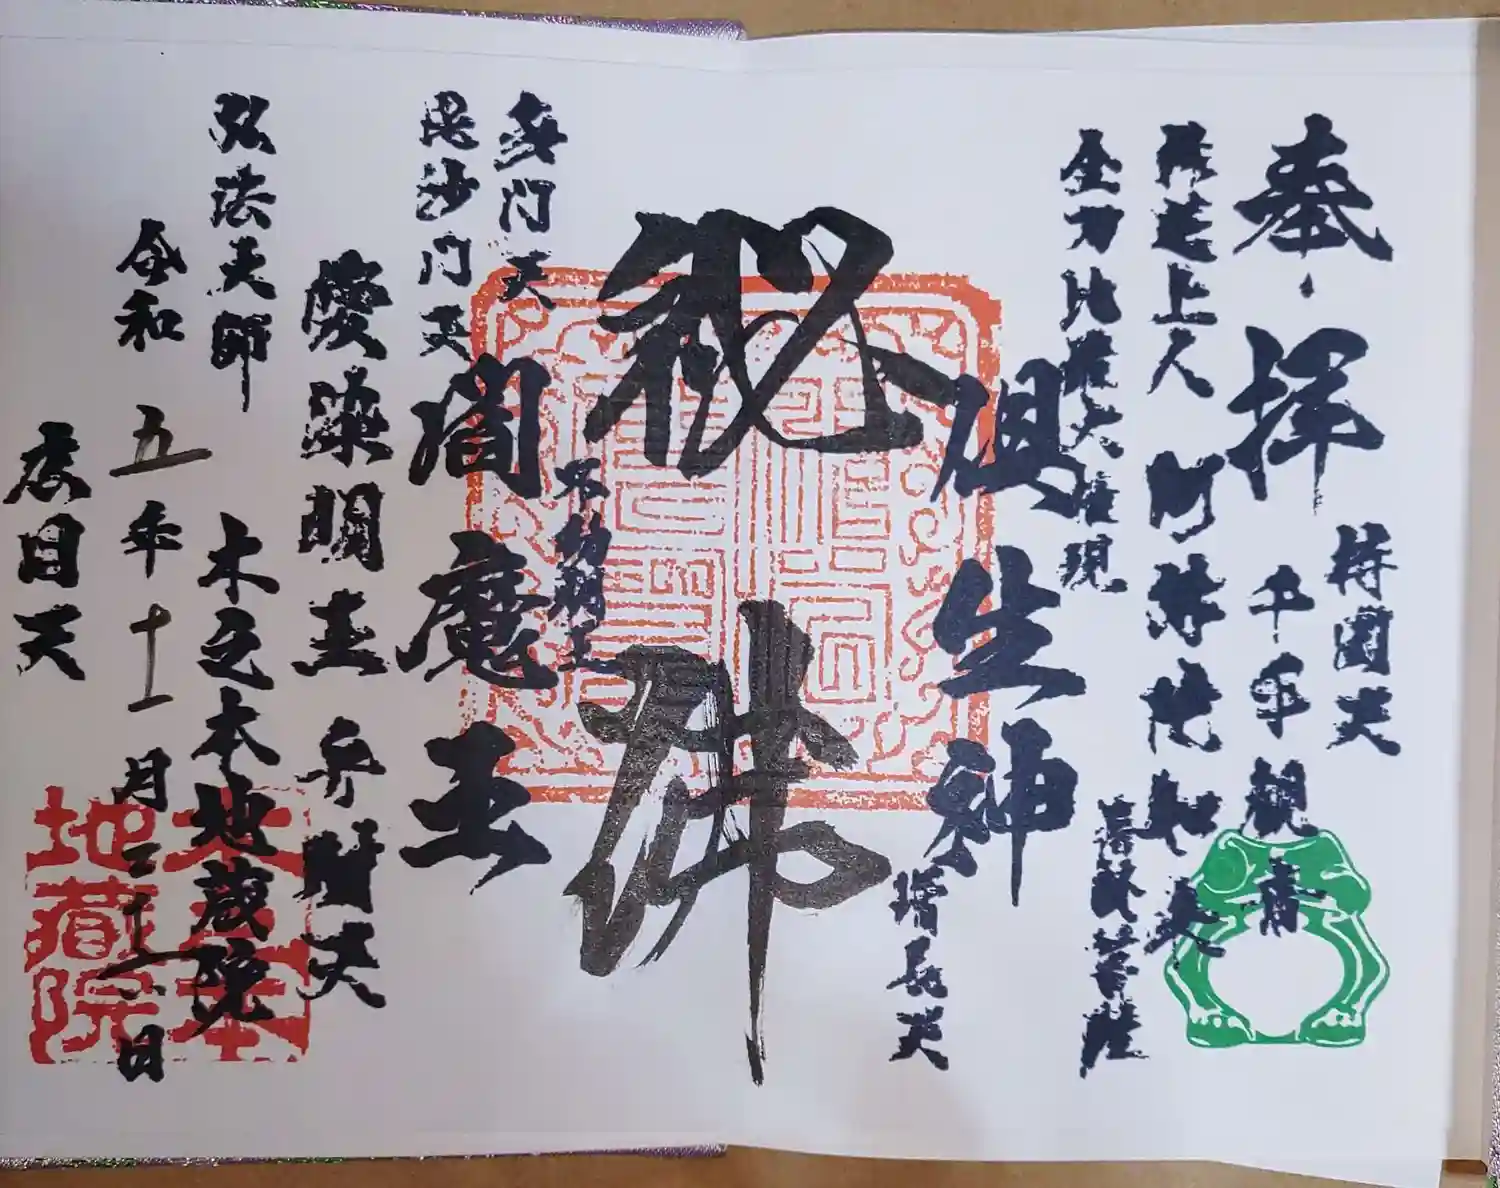 奉拝
持国天
千手観音
阿弥陀如来
金刀比羅大権現
倶生神
増長天
秘佛
多門天
毘沙門天
不動明王
閻魔王
愛染明王
弁財天
弘法大師
木之本地蔵院
令和五年十一月二十六日
広目天
木之本
地蔵院